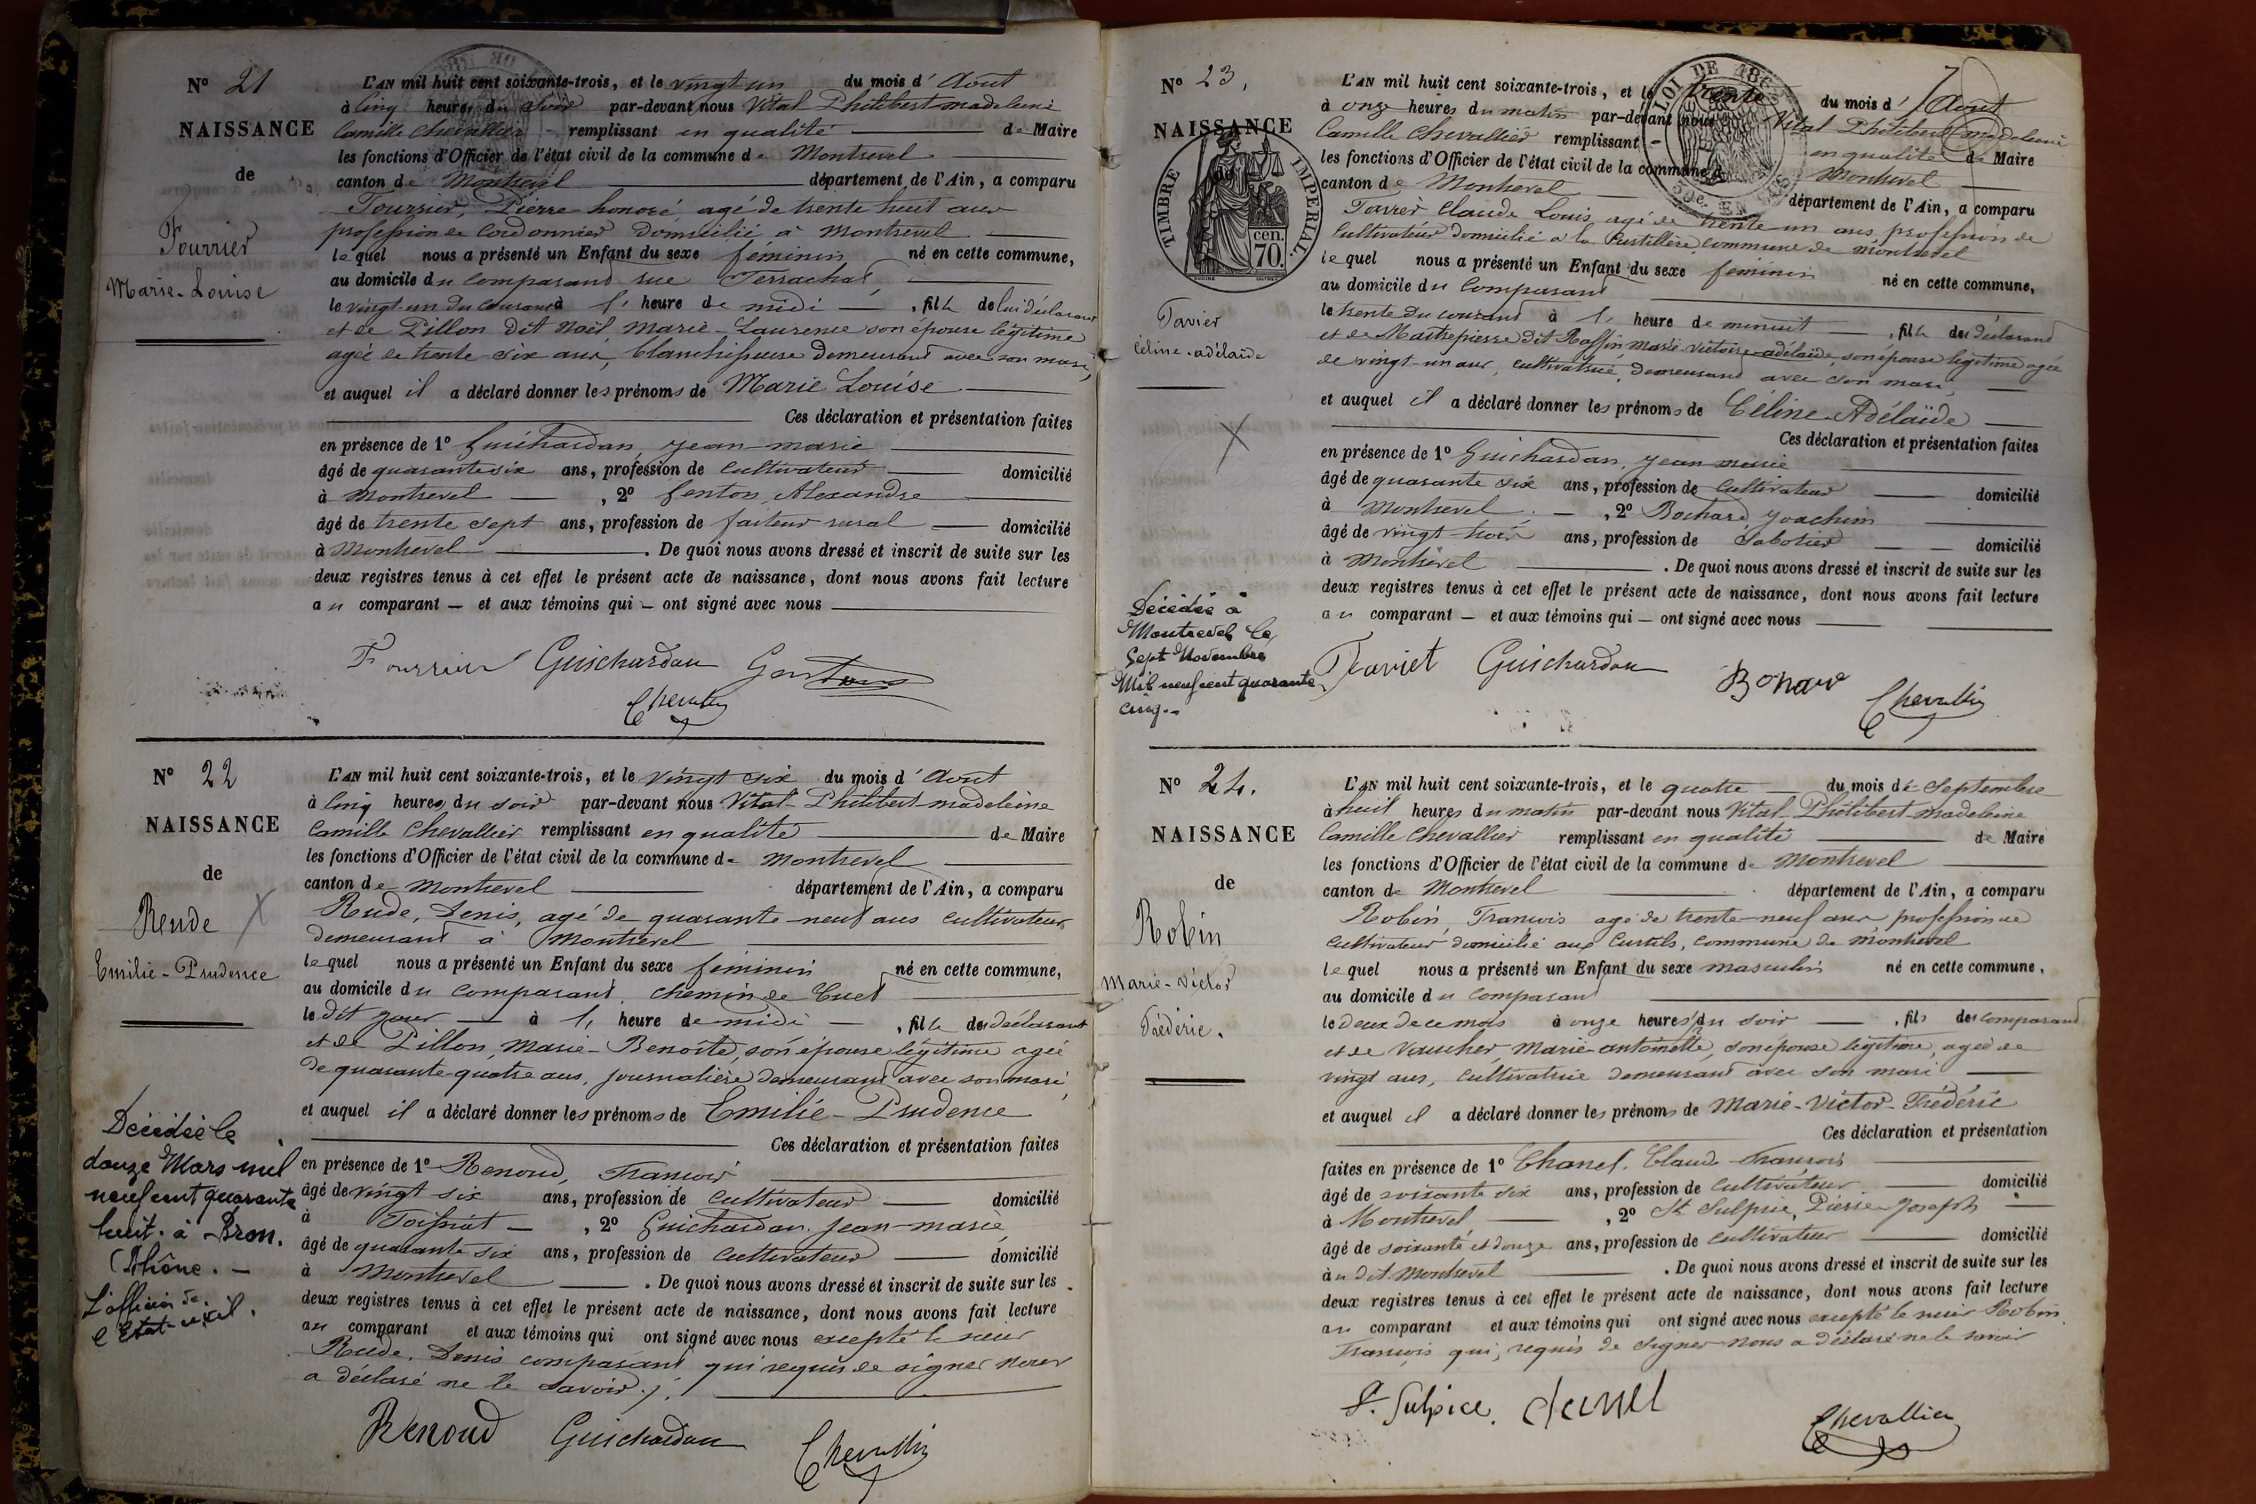 N° 21
NAISSANCE
de
Fourrier
Marie-Louise
L'AN mil huit cent soixante-trois, et le vingt un du mois d'Aout
à cinq heures du soir par-devant nous Vital Philibert madeleine
Camille Chevallier remplissant en qualité de Maire
les fonctions d'Officier de l'état civil de la commune de Montrevel
canton de Montrevel département de l'Ain, a comparu
Fourrier, Pierre honoré, agé de trente huit ans
profession de Cordonnier domicilié à Montrevel
lequel nous a présenté un Enfant du sexe féminin né en cette commune,
au domicile du comparant rue
le vingt-un du courant à 1, heure de midi, fille de lui déclarant
et de Pillon dit Noël, Marie-Laurence son épouse légitime
agée de trente six ans, blanchisseuse demeurant avec son mari,
et auquel il a déclaré donner les prénoms de Marie Louise
Ces déclaration et présentation faites
en présence de 1° Guichardan, jean-marie
âgé de quarante six ans, profession de cultivateur domicilié
à Montrevel, 2° Genton, Alexandre
âgé de trente sept ans, profession de facteur rural domicilié
à Montrevel. De quoi nous avons dressé et inscrit de suite sur les
deux registres tenus à cet effet le présent acte de naissance, dont nous avons fait lecture
au comparant — et aux témoins qui — ont signé avec nous
Fourrier Guichardan Genton
Chevallier
N° 22
NAISSANCE
de
Reude X
Emilie-Prudence
Décédée le
douze Mars mil
neuf cent quarante
huit. à Bron.
(Rhône. —
L'officier de
l'Etat-civil.
L'AN mil huit cent soixante-trois, et le vingt six du mois d'Aout
à cinq heures du soir par-devant nous Vital-Philibert-madeleine
Camille Chevallier remplissant en qualité de Maire
les fonctions d'Officier de l'état civil de la commune de Montrevel
canton de Montrevel département de l'Ain, a comparu
Reude, Denis, agé de quarante-neuf ans cultivateur
demeurant à Montrevel
lequel nous a présenté un Enfant du sexe féminin né en cette commune,
au domicile du comparant, chemin de Cuet
le dit jour à 1, heure de midi, fille du déclarant
et de Pillon, Marie-Benoite, son épouse légitime agée
de quarante quatre ans, journalière, demeurant avec son mari,
et auquel il a déclaré donner les prénoms de Emilie-Prudence
Ces déclaration et présentation faites
en présence de 1° Renoud, François
âgé de vingt six ans, profession de cultivateur domicilié
à Foissiat, 2° Guichardan, jean-marie,
âgé de quarante six ans, profession de cultivateur domicilié
à Montrevel. De quoi nous avons dressé et inscrit de suite sur les
deux registres tenus à cet effet le présent acte de naissance, dont nous avons fait lecture
au comparant et aux témoins qui ont signé avec nous excepté le sieur
Reude, Denis comparant qui requis de signer nous
a déclaré ne le savoir.
Renoud Guichardan Chevallier
N° 23,
NAISSANCE
de
TIMBRE IMPÉRIAL.
70 cen.
Tavier
Céline-adélaïde
X
Décédée à
Montrevel le
Sept Novembre
Mil neuf cent quarante
cinq.-
LOI DE 186
L'AN mil huit cent soixante-trois, et le trente du mois d'Aout
à onze heures du matin par-devant nous Vital Philibert madeleine
Camille Chevallier remplissant en qualité de Maire
les fonctions d'Officier de l'état civil de la commune de Montrevel
canton de Montrevel département de l'Ain, a comparu
Tavier Claude Louis, agé de trente-un ans, profession de
cultivateur domicilié à la Curtillère, commune de Montrevel
lequel nous a présenté un Enfant du sexe féminin né en cette commune,
au domicile du comparant
le trente du courant à 1, heure de minuit, fille du déclarant
et de Maitrepierre dit Roffin marie-victoire-adélaïde, son épouse légitime agée
de vingt-un ans, cultivatrice, demeurant avec son mari
et auquel il a déclaré donner les prénoms de Céline-Adélaïde
Ces déclaration et présentation faites
en présence de 1° Guichardan, jean marie
âgé de quarante six ans, profession de cultivateur domicilié
à Montrevel, 2° Bochard, Joachim
âgé de vingt-trois ans, profession de Sabotier domicilié
à Montrevel. De quoi nous avons dressé et inscrit de suite sur les
deux registres tenus à cet effet le présent acte de naissance, dont nous avons fait lecture
au comparant — et aux témoins qui — ont signé avec nous
Taviet Guichardan Chevallier
N° 24.
NAISSANCE
de
Robin
Marie-Victor
Frédéric.
L'AN mil huit cent soixante-trois, et le quatre du mois de Septembre
à huit heures du matin par-devant nous Vital-Philibert-madeleine
Camille Chevallier remplissant en qualité de Maire
les fonctions d'Officier de l'état civil de la commune de Montrevel
canton de Montrevel département de l'Ain, a comparu
Robin, François agé de trente-neuf ans profession de
cultivateur domicilié aux Curtils, commune de Montrevel
lequel nous a présenté un Enfant du sexe masculin né en cette commune,
au domicile du comparant
le deux de ce mois à onze heures du soir, fils du comparant
et de Vaucher, Marie-antoinette, son épouse légitime, agée de
vingt ans, cultivatrice demeurant avec son mari
et auquel il a déclaré donner les prénoms de Marie-Victor-Frédéric
Ces déclaration et présentation
faites en présence de 1° Chanel, Claude-François
âgé de soixante six ans, profession de cultivateur domicilié
à Montrevel, 2° St Sulpice, Pierre-Joseph
âgé de soixante et douze ans, profession de cultivateur domicilié
à u dit Montrevel. De quoi nous avons dressé et inscrit de suite sur les
deux registres tenus à cet effet le présent acte de naissance, dont nous avons fait lecture
au comparant et aux témoins qui ont signé avec nous excepté le sieur Robin
François qui, requis de signer nous a déclaré ne le savoir
St Sulpice. chanel
Chevallier